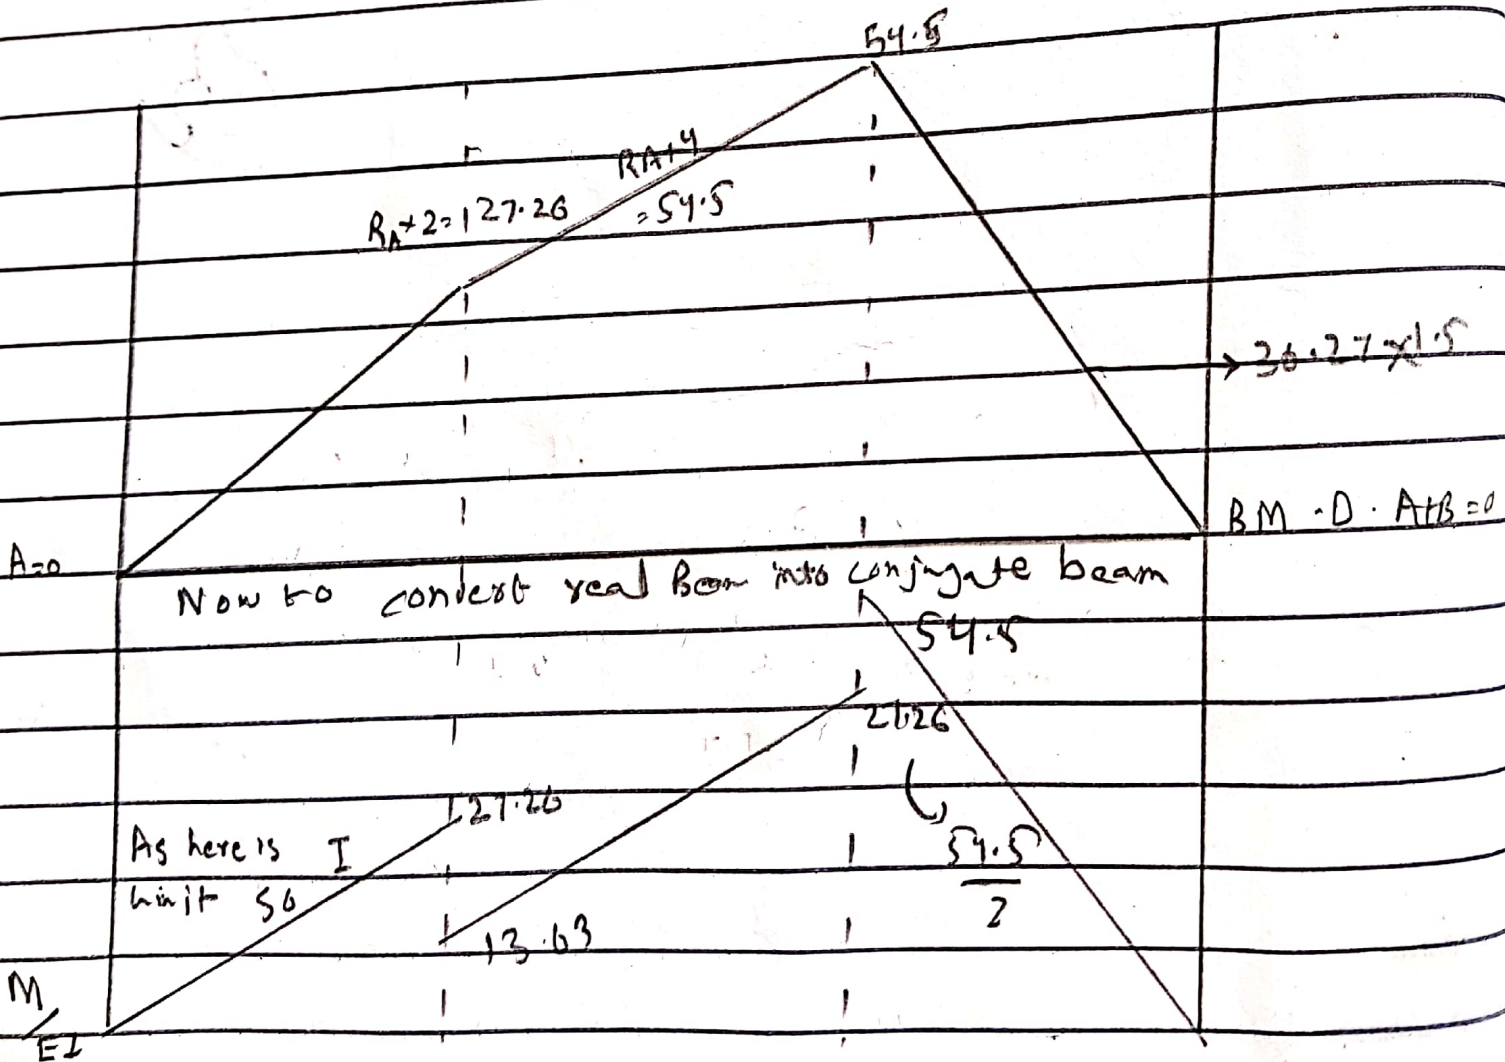 54.5
RA×4
RA×2=27.26
=54.5
→36.27×1.5
A=0
BM.D. A+B=0
Now to convert real Beam into conjugate beam
54.5
27.26
27.26
As here is I
limit so
54.5
2
13.63
M
EI